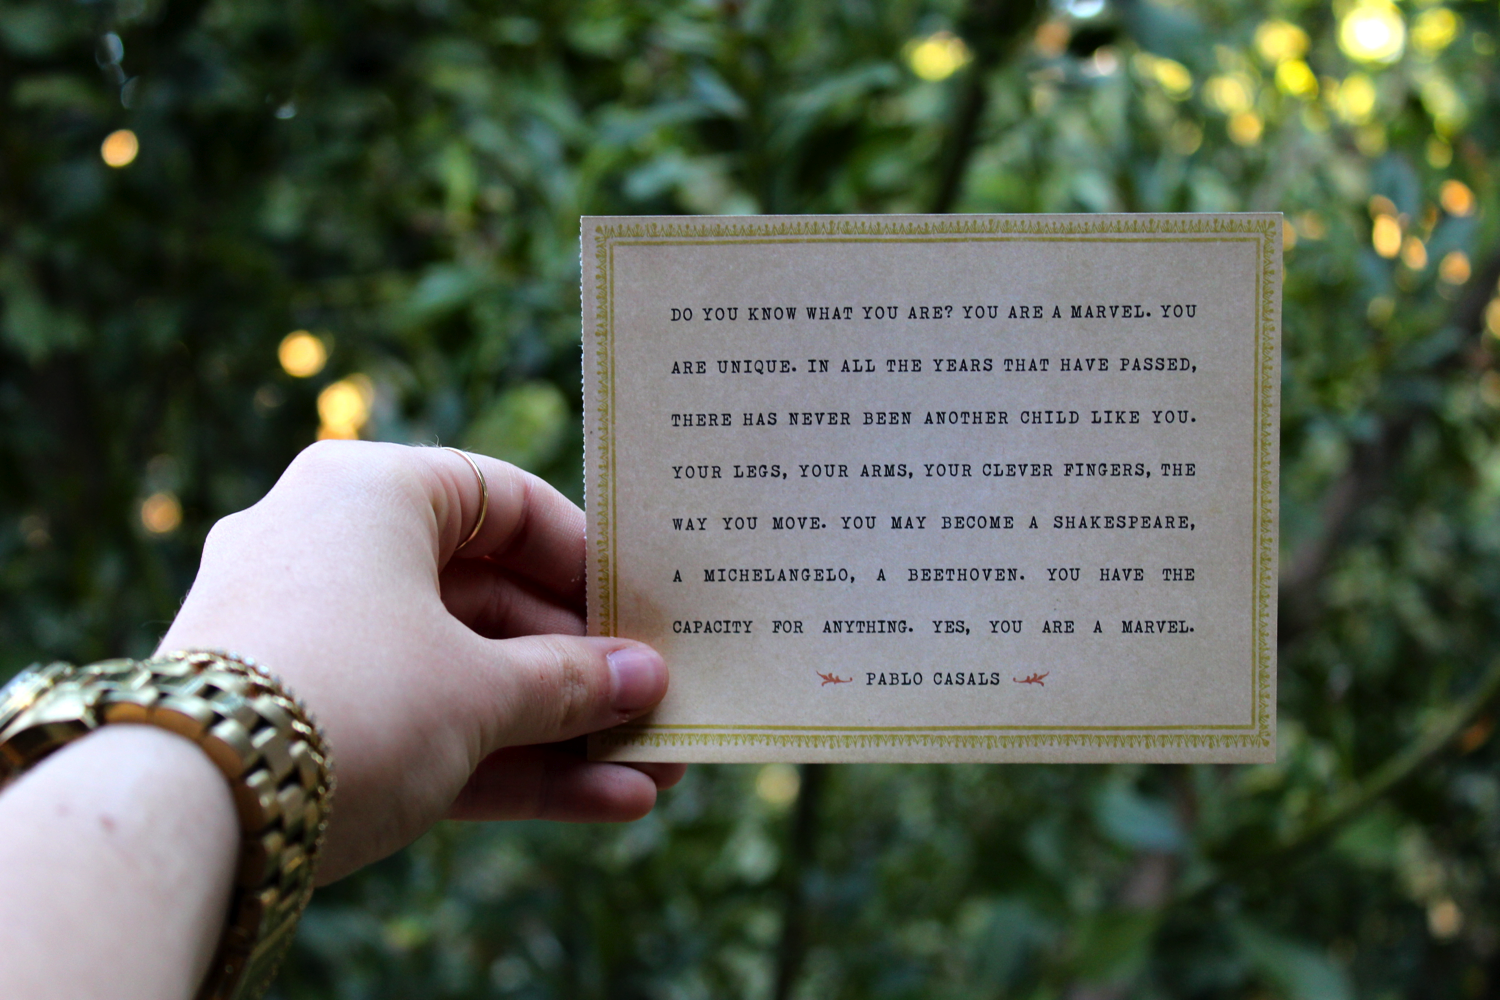 DO YOU KNOW WHAT YOU ARE? YOU ARE A MARVEL. YOU
ARE UNIQUE. IN ALL THE YEARS THAT HAVE PASSED,
THERE HAS NEVER BEEN ANOTHER CHILD LIKE YOU.
YOUR LEGS, YOUR ARMS, YOUR CLEVER FINGERS, THE
WAY YOU MOVE. YOU MAY BECOME A SHAKESPEARE,
A MICHELANGELO, A BEETHOVEN. YOU HAVE THE
CAPACITY FOR ANYTHING. YES, YOU ARE A MARVEL.
PABLO CASALS